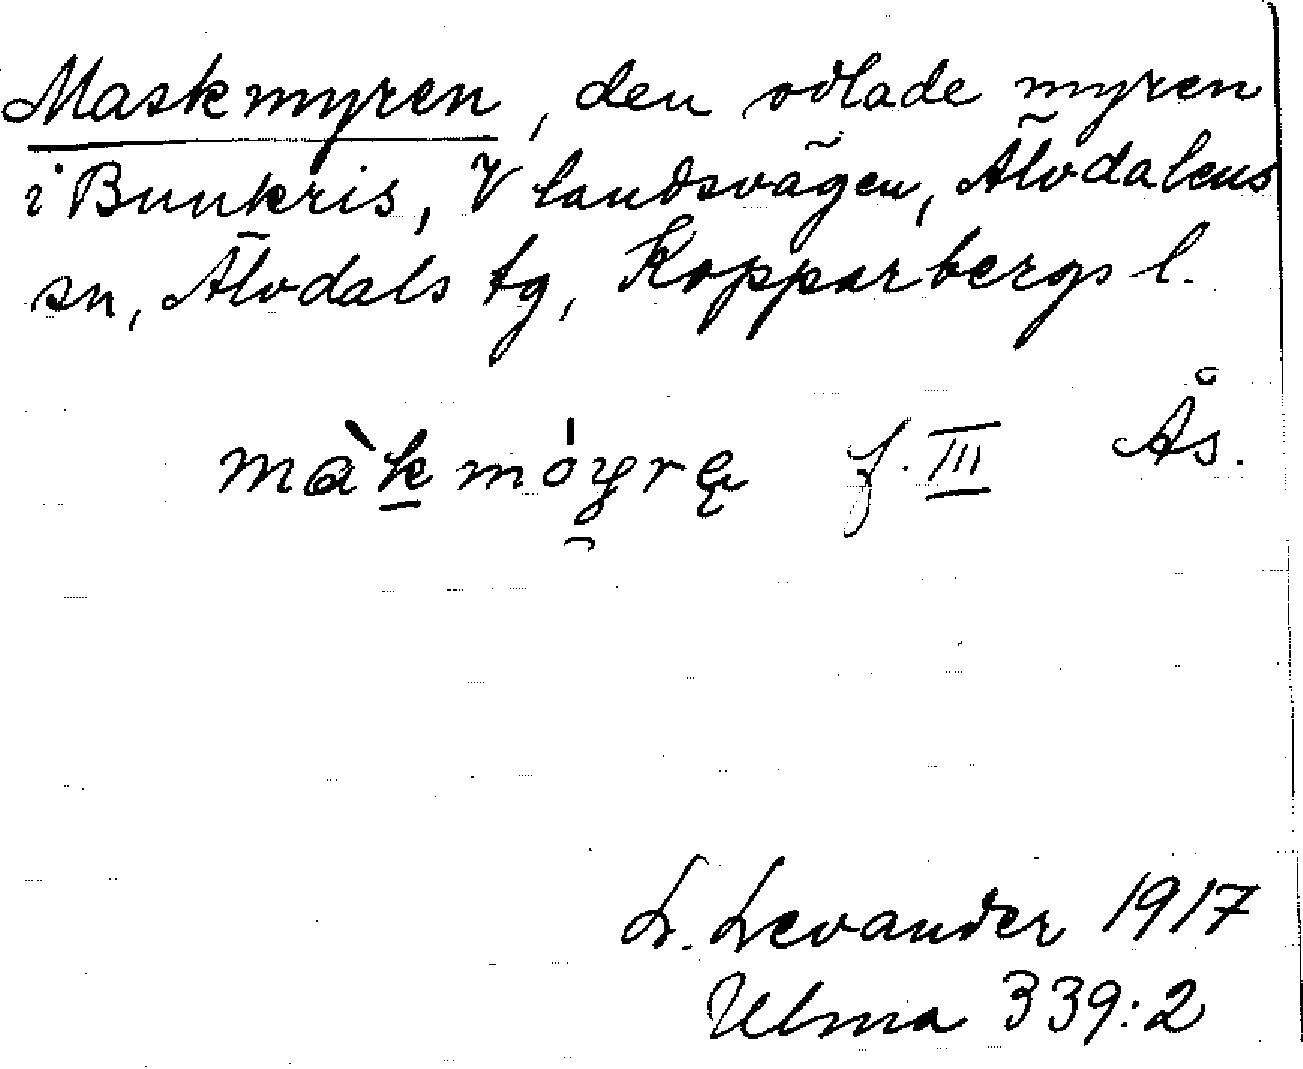 Maskmyren, den odlade myren
i Bunkris, V landsvägen, Älvdalens
sn, Älvdals tg, Kopparbergs l.
màk móyrą f. III Ås.
L. Levander 1917
Ulma 339:2